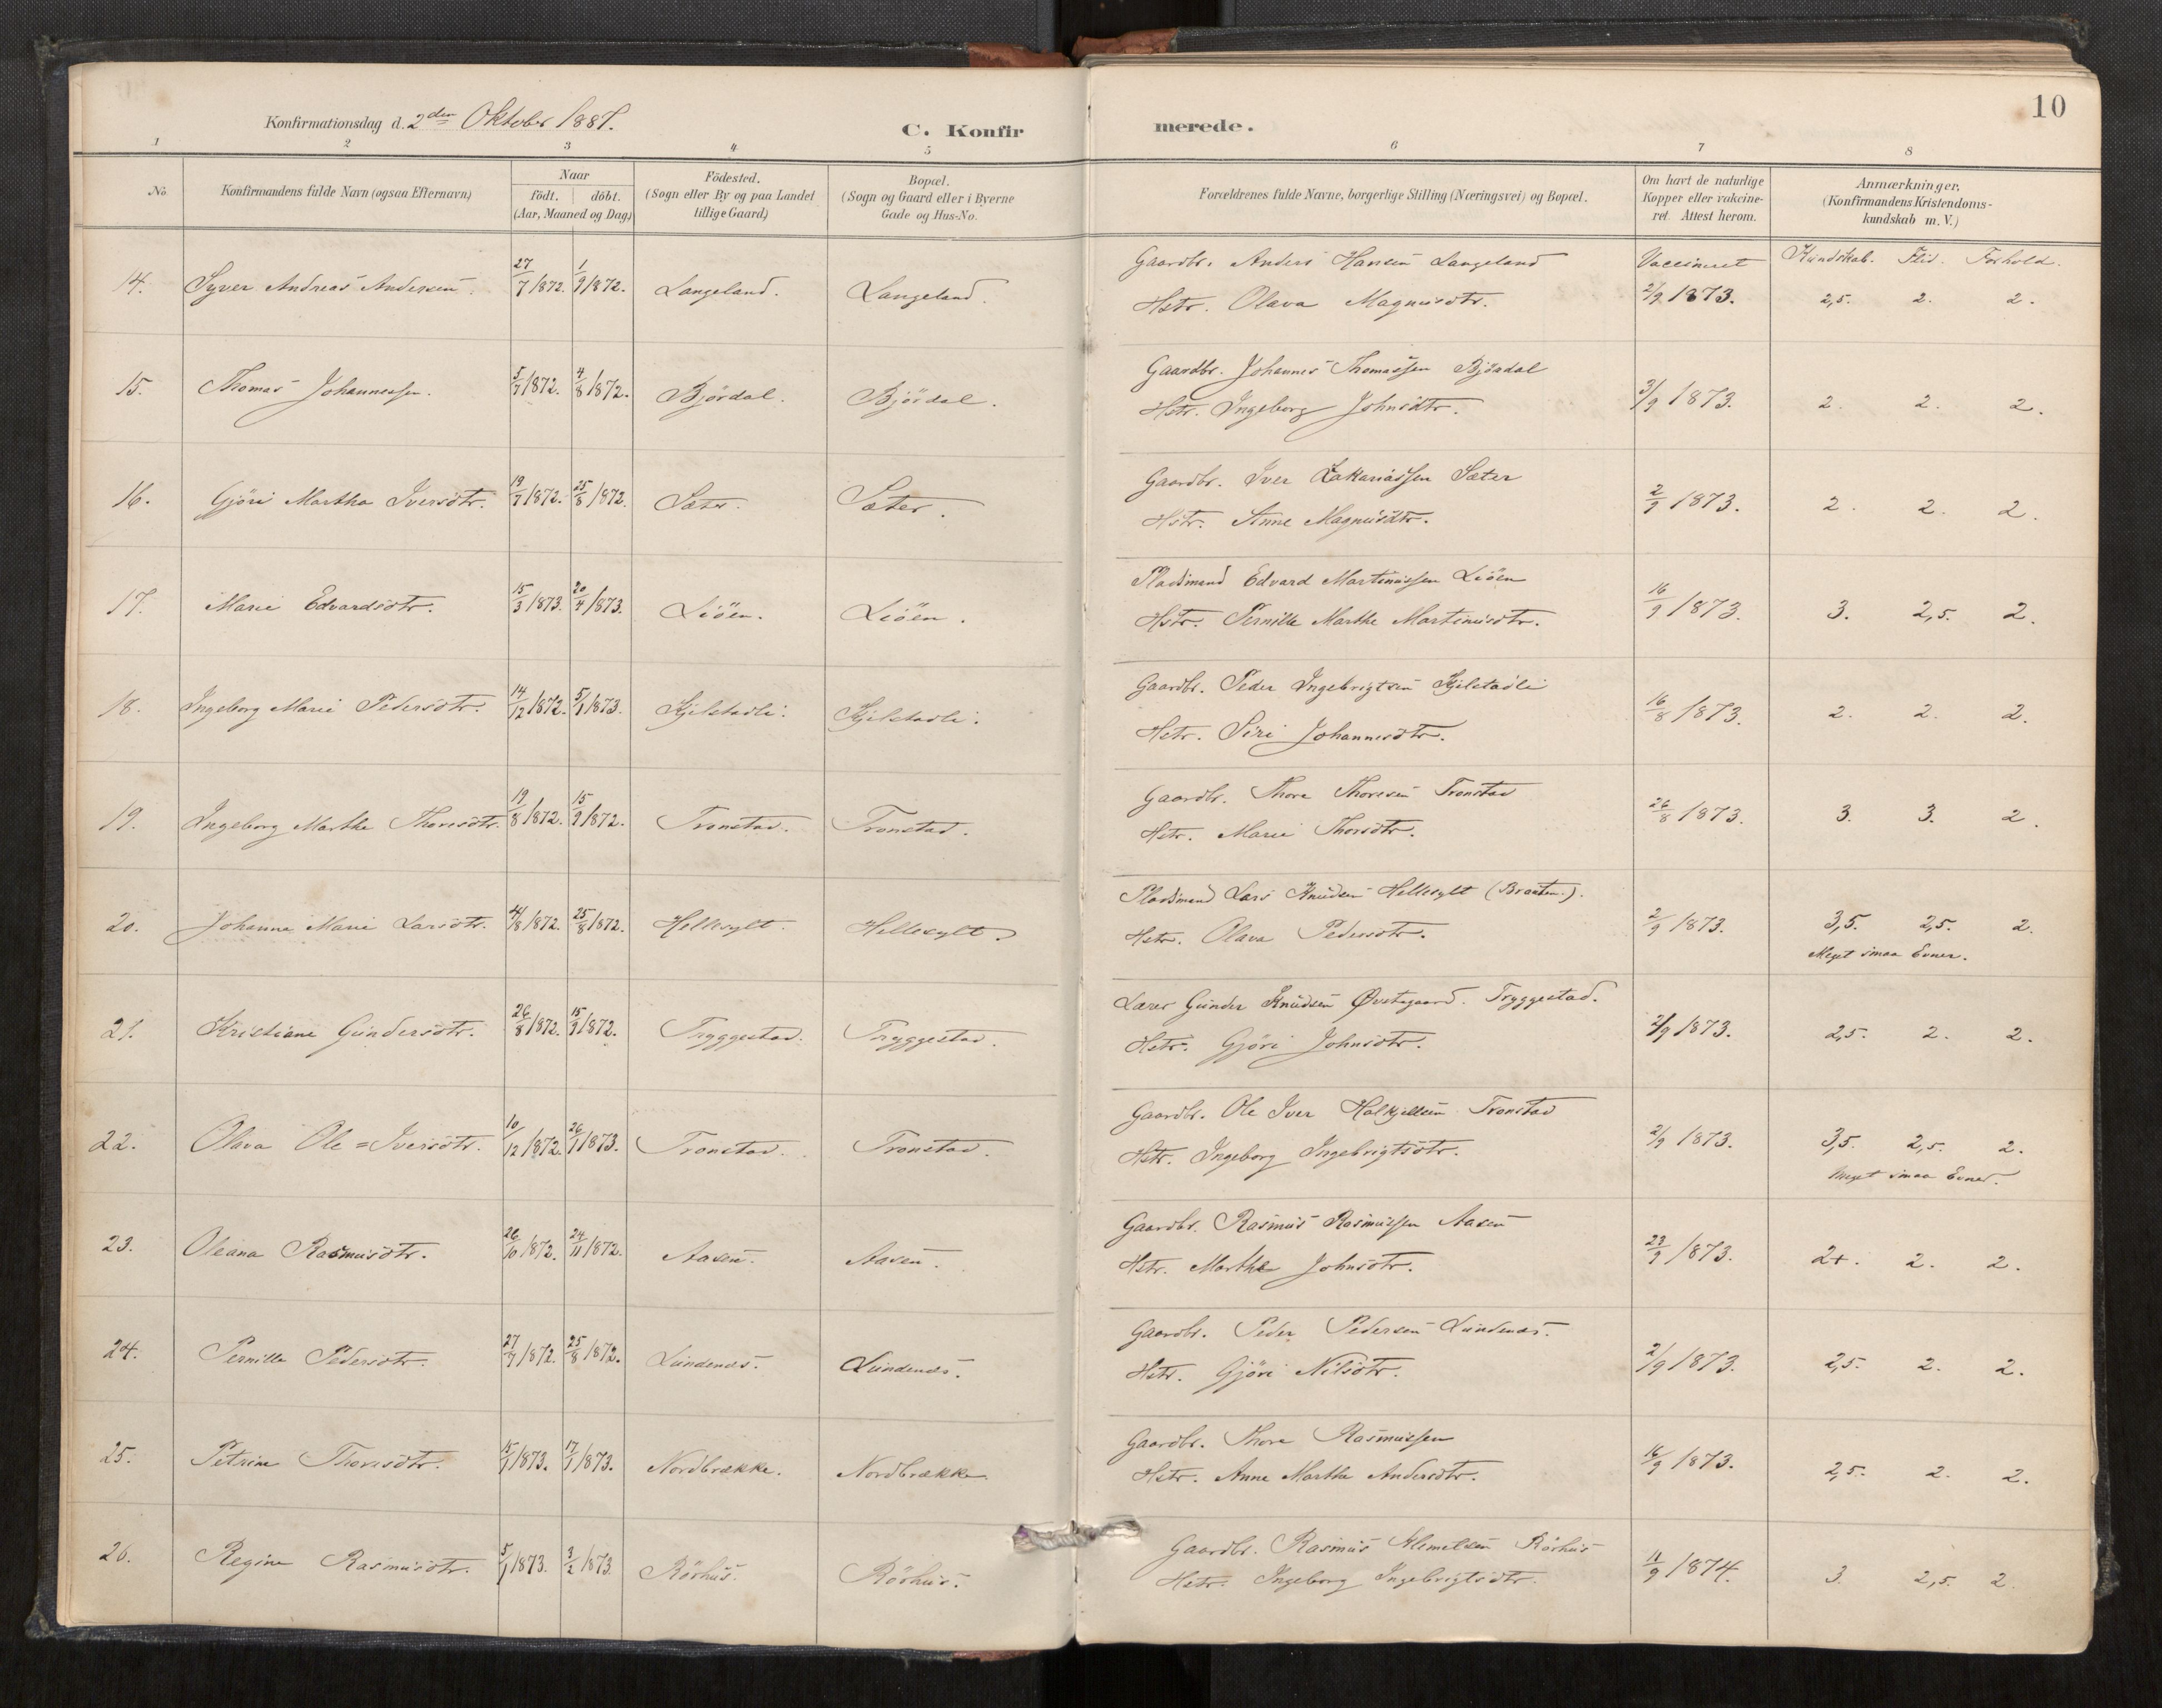 10
Konfirmationsdag d. 2den Oktober 1887.
C. Konfirmerede.
1 2 3 4 5 6 7 8
No
Konfirmandens fulde Navn (ogsaa Efternavn)
Naar
födt. döbt.
(Aar, Maaned og Dag)
Födested.
(Sogn eller By og paa Landet
tillige Gaard)
Bopæl.
(Sogn og Gaard eller i Byerne
Gade og Hus-No.
Forældrenes fulde Navne, borgerlige Stilling (Næringsvei) og Bopæl.
Om havt de naturlige
Kopper eller vakcine-
ret. Attest herom.
Anmærkninger,
(Konfirmandens Kristendoms-
kundskab m. V.)
Vaccineret Kundskab. Flid. Forhold.
14. Syver Andreas Andersen. 27/7 1872. 1/9 1872. Langeland. Langeland. Gaardbr. Anders Hansen Langeland
Hstr. Olava Magnusdtr. 2/9 1873. 2,5. 2. 2.
15. Thomas Johannessen. 5/7 1872. 4/8 1872. Björdal. Björdal. Gaardbr. Johannes Thomassen Björdal
Hstr. Ingeborg Johnsdtr. 3/9 1873. 2. 2. 2.
16. Gjöri Martha Iversdtr. 19/7 1872. 25/8 1872. Sæter. Sæter. Gaardbr. Iver Zakariassen Sæter
Hstr. Anne Magnusdtr. 2/9 1873. 2. 2. 2.
17. Marie Edvardsdtr. 15/3 1873. 20/4 1873. Liöen. Liöen. Pladsmand Edvard Martinussen Liöen
Hstr. Pernille Marthe Martinusdtr. 16/9 1873. 3. 2,5. 2.
18. Ingeborg Marie Pedersdtr. 14/12 1872. 5/1 1873. Kjelstadli. Kjelstadli. Gaardbr. Peder Ingebrigtsen Kjelstadli
Hstr. Siri Johannesdtr. 16/8 1873. 2. 2. 2.
19. Ingeborg Marthe Thoresdtr. 19/8 1872. 15/9 1872. Tronstad. Tronstad. Gaardbr. Thore Thoresen Tronstad
Hstr. Marie Thorsdtr. 26/8 1873. 3. 3. 2.
20. Johanne Marie Larsdtr. 4/8 1872. 25/8 1872. Hellesylt. Hellesylt. Pladsmand Lars Knudsen Hellesylt (Braaten.).
Hstr. Olava Pedersdtr. 2/9 1873. 3,5. 2,5. 2.
Meget smaa Evner.
21. Kristiane Gundersdtr. 26/8 1872. 15/9 1872. Tryggestad. Tryggestad. Lærer Gunder Knudsen Øvstegaard. Tryggestad.
Hstr. Gjöri Johnsdtr. 2/9 1873. 2,5. 2. 2.
22. Olava Ole=Iversdtr. 10/12 1872. 26/1 1873. Tronstad. Tronstad. Gaardbr. Ole Iver Halkjelsen Tronstad
Hstr. Ingeborg Ingebrigtsdtr. 2/9 1873. 3,5. 2,5. 2.
Meget smaa Evner.
23. Oleana Rasmusdtr. 26/10 1872. 24/11 1872. Aasen. Aasen. Gaardbr. Rasmus Rasmussen Aasen
Hstr. Marthe Johnsdtr. 23/9 1873. 2+. 2. 2.
24. Pernille Pedersdtr. 27/7 1872. 25/8 1872. Lundenæs. Lundenæs. Gaardbr. Peder Pedersen Lundenæs.
Hstr. Gjöri Nilsdtr. 2/9 1873. 2,5. 2. 2.
25. Petrine Thoresdtr. 15/1 1873. 17/1 1873. Nordbrække. Nordbrække. Gaardbr. Thore Rasmussen
Hstr. Anne Marthe Andersdtr. 16/9 1873. 2,5. 2. 2.
26. Regine Rasmusdtr. 5/1 1873. 3/2 1873. Rörhus. Rörhus. Gaardbr. Rasmus Klemetsen Rörhus
Hstr. Ingeborg Ingebrigtsdtr. 11/9 1874. 3. 2,5. 2.